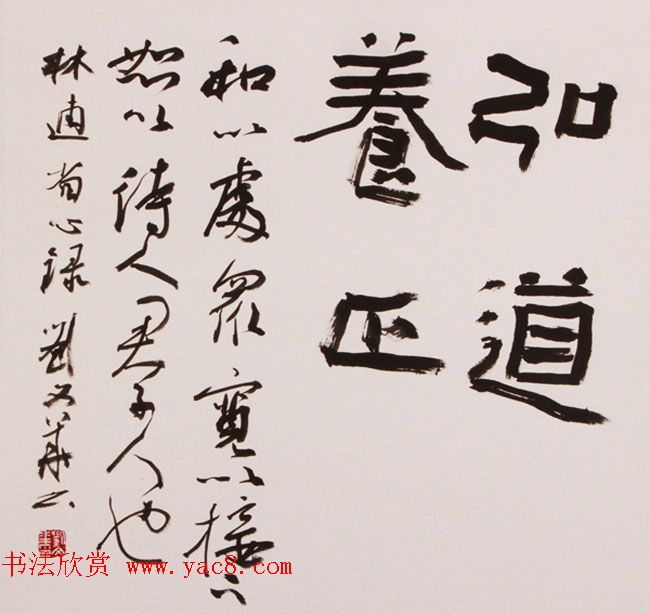 弘道
養正
和以處眾寬以接下
恕以待人君子人也
林逋省心録 劉文華书
书法欣赏 www.yac8.com